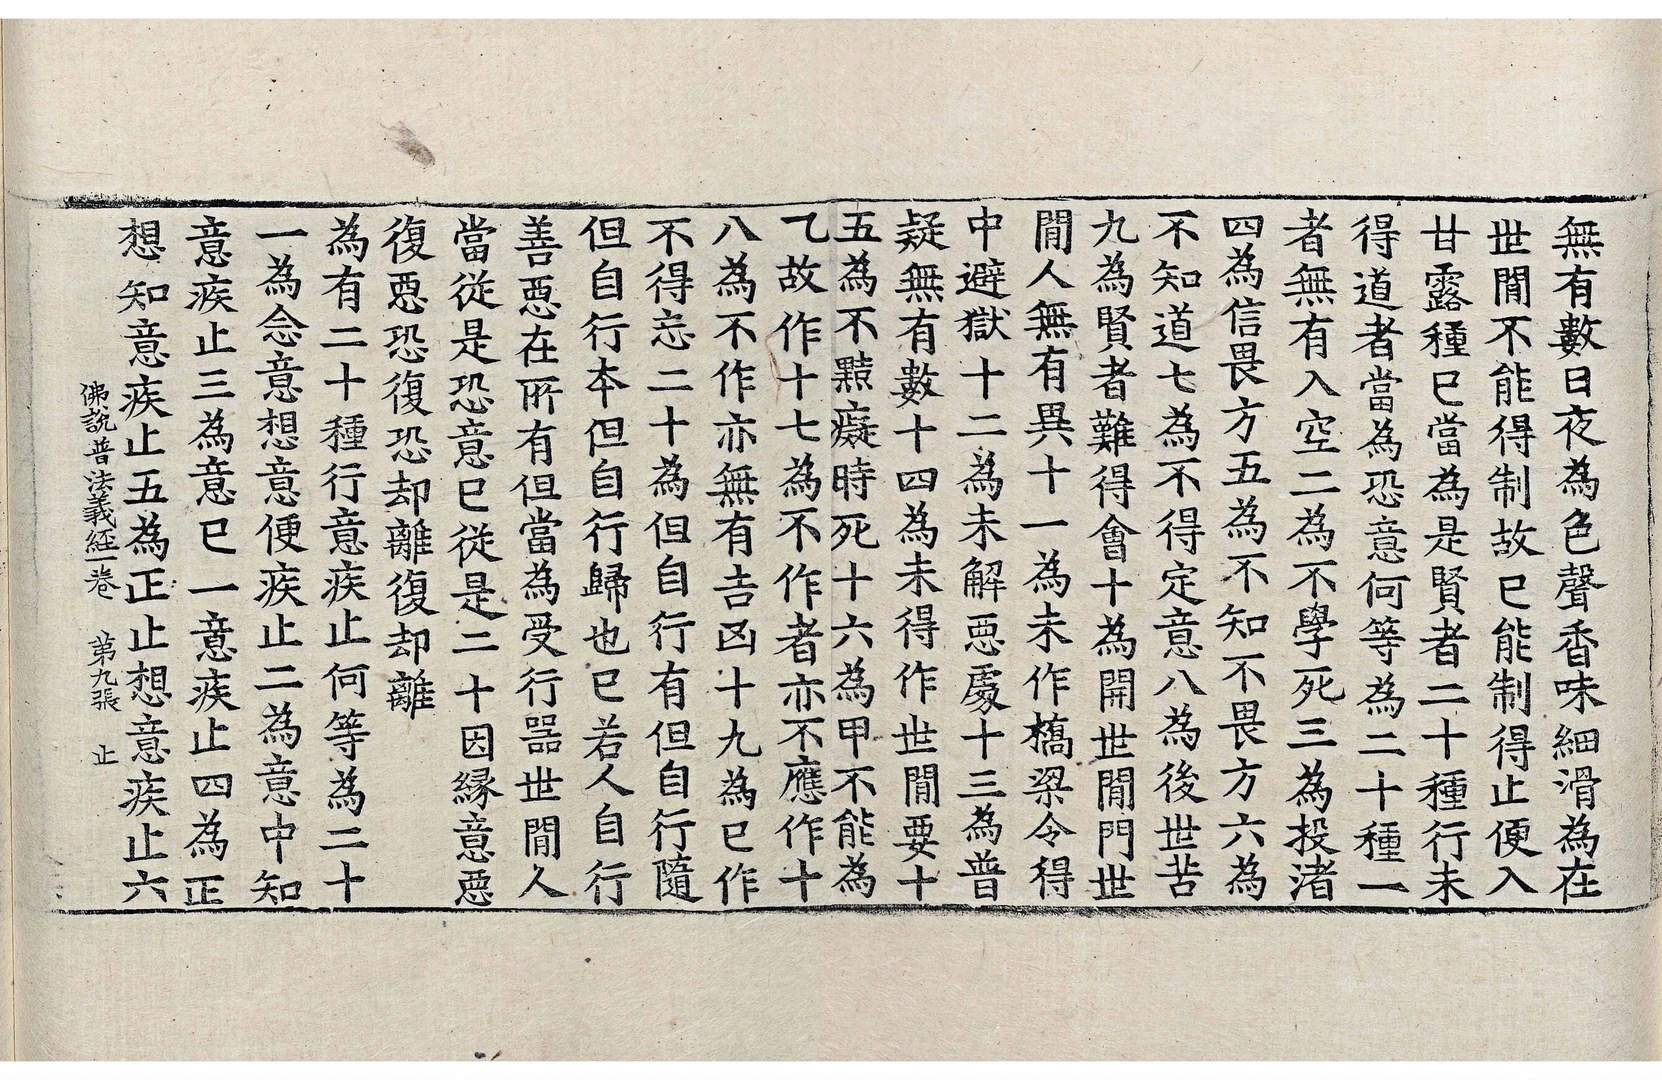 無有數日夜為色聲香味細滑為在
世閒不能得制故已能制得止便入
甘露種已當為是賢者二十種行未
得道者當為恐意何等為二十種一
者無有入空二為不學死三為投渚
四為信畏方五為不知不畏方六為
不知道七為不得定意八為後世苦
九為賢者難得會十為開世閒門世
閒人無有異十一為未作橋梁令得
中避獄十二為未解惡處十三為普
疑無有數十四為未得作世閒要十
五為不黠癡時死十六為甲不能為
乙故作十七為不作者亦不應作十
八為不作亦無有吉凶十九為已作
不得忘二十為但自行有但自行隨
但自行本但自行歸也已若人自行
善惡在所有但當為受行噐世閒人
當從是恐意已從是二十因緣意惡
復惡恐復恐却離復却離
為有二十種行意疾止何等為二十
一為念意想意便疾止二為意中知
意疾止三為意已一意疾止四為正
想知意疾止五為正止想意疾止六
佛說普法義經一卷 第九張 止